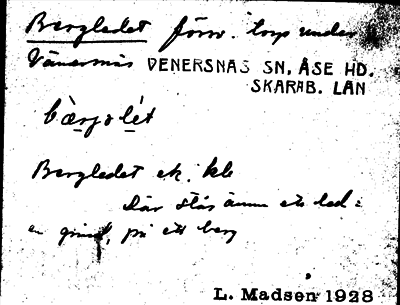 Bergledet förr. torp under
Vänersnäs VENERSNAS SN, ÅSE HD.
SKARAB. LÄN
bærjolét
Bergledet ek. kb
Där står ännu ett led =
en grind, på ett berg
L. Madsen 1928